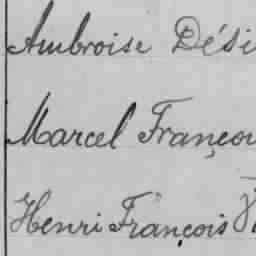 Ambroise Dési
Marcel Françoi
Henri François